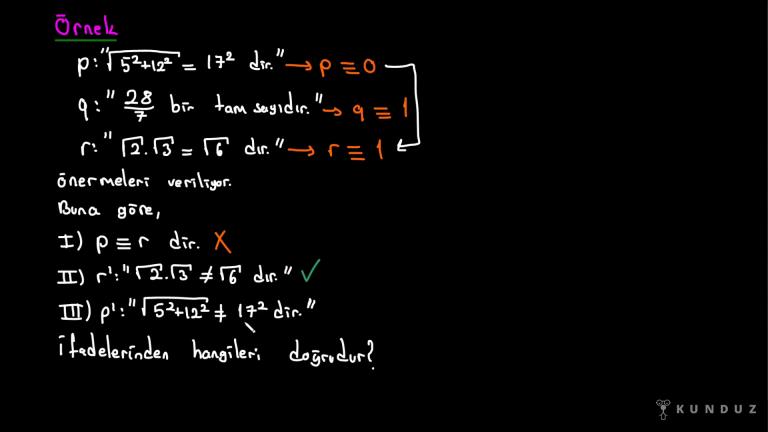 Örnek
p: "√5²+12² = 17² dir." → p ≡ 0
q: " 28/7 bir tam sayıdır." → q ≡ 1
r: " √2.√3 = √6 dır." → r ≡ 1
önermeleri veriliyor.
Buna göre,
I) p ≡ r dir. X
II) r': "√2.√3 ≠ √6 dır." ✓
III) p': "√5²+12² ≠ 17² dir."
ifadelerinden hangileri doğrudur?
KUNDUZ